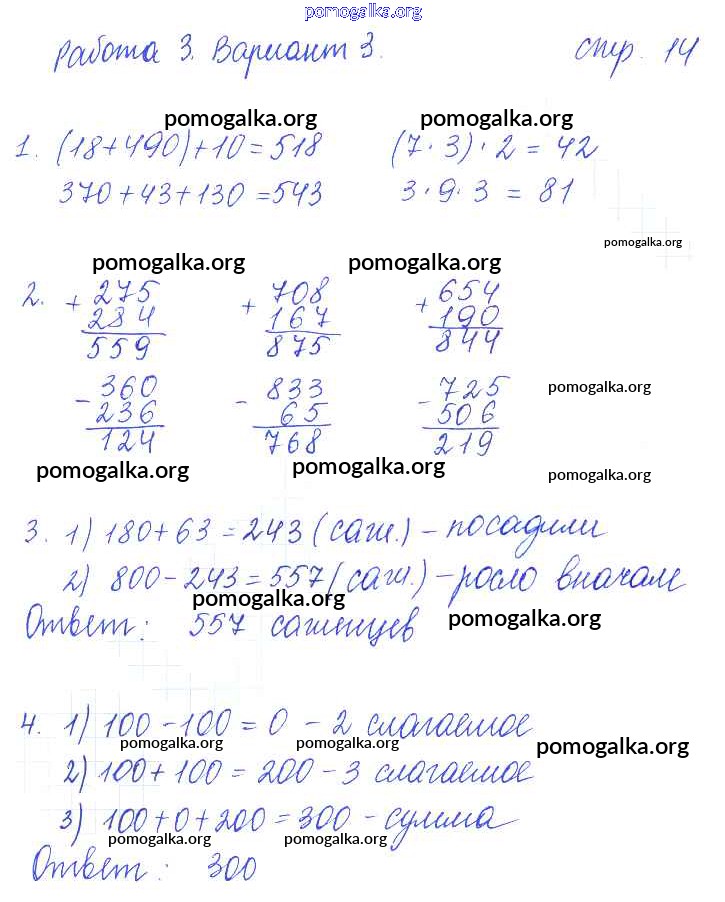 pomogalka.org
Работа 3. Вариант 3. стр. 14
pomogalka.org pomogalka.org
1. (18+490)+10=518 (7·3)·2=42
370+43+130=543 3·9·3=81
pomogalka.org
pomogalka.org pomogalka.org
2. + 275 + 708 + 654
284 167 190
559 875 844
- 360 - 833 - 725 pomogalka.org
236 65 506
124 768 219
pomogalka.org pomogalka.org pomogalka.org
3. 1) 180+63=243 (саж.) - посадили
2) 800-243=557 (саж.) - росло вначале
pomogalka.org
Ответ: 557 саженцев pomogalka.org
4. 1) 100-100=0 - 2 слагаемое
pomogalka.org pomogalka.org pomogalka.org
2) 100+100=200 - 3 слагаемое
3) 100+0+200=300 - сумма
pomogalka.org pomogalka.org
Ответ: 300